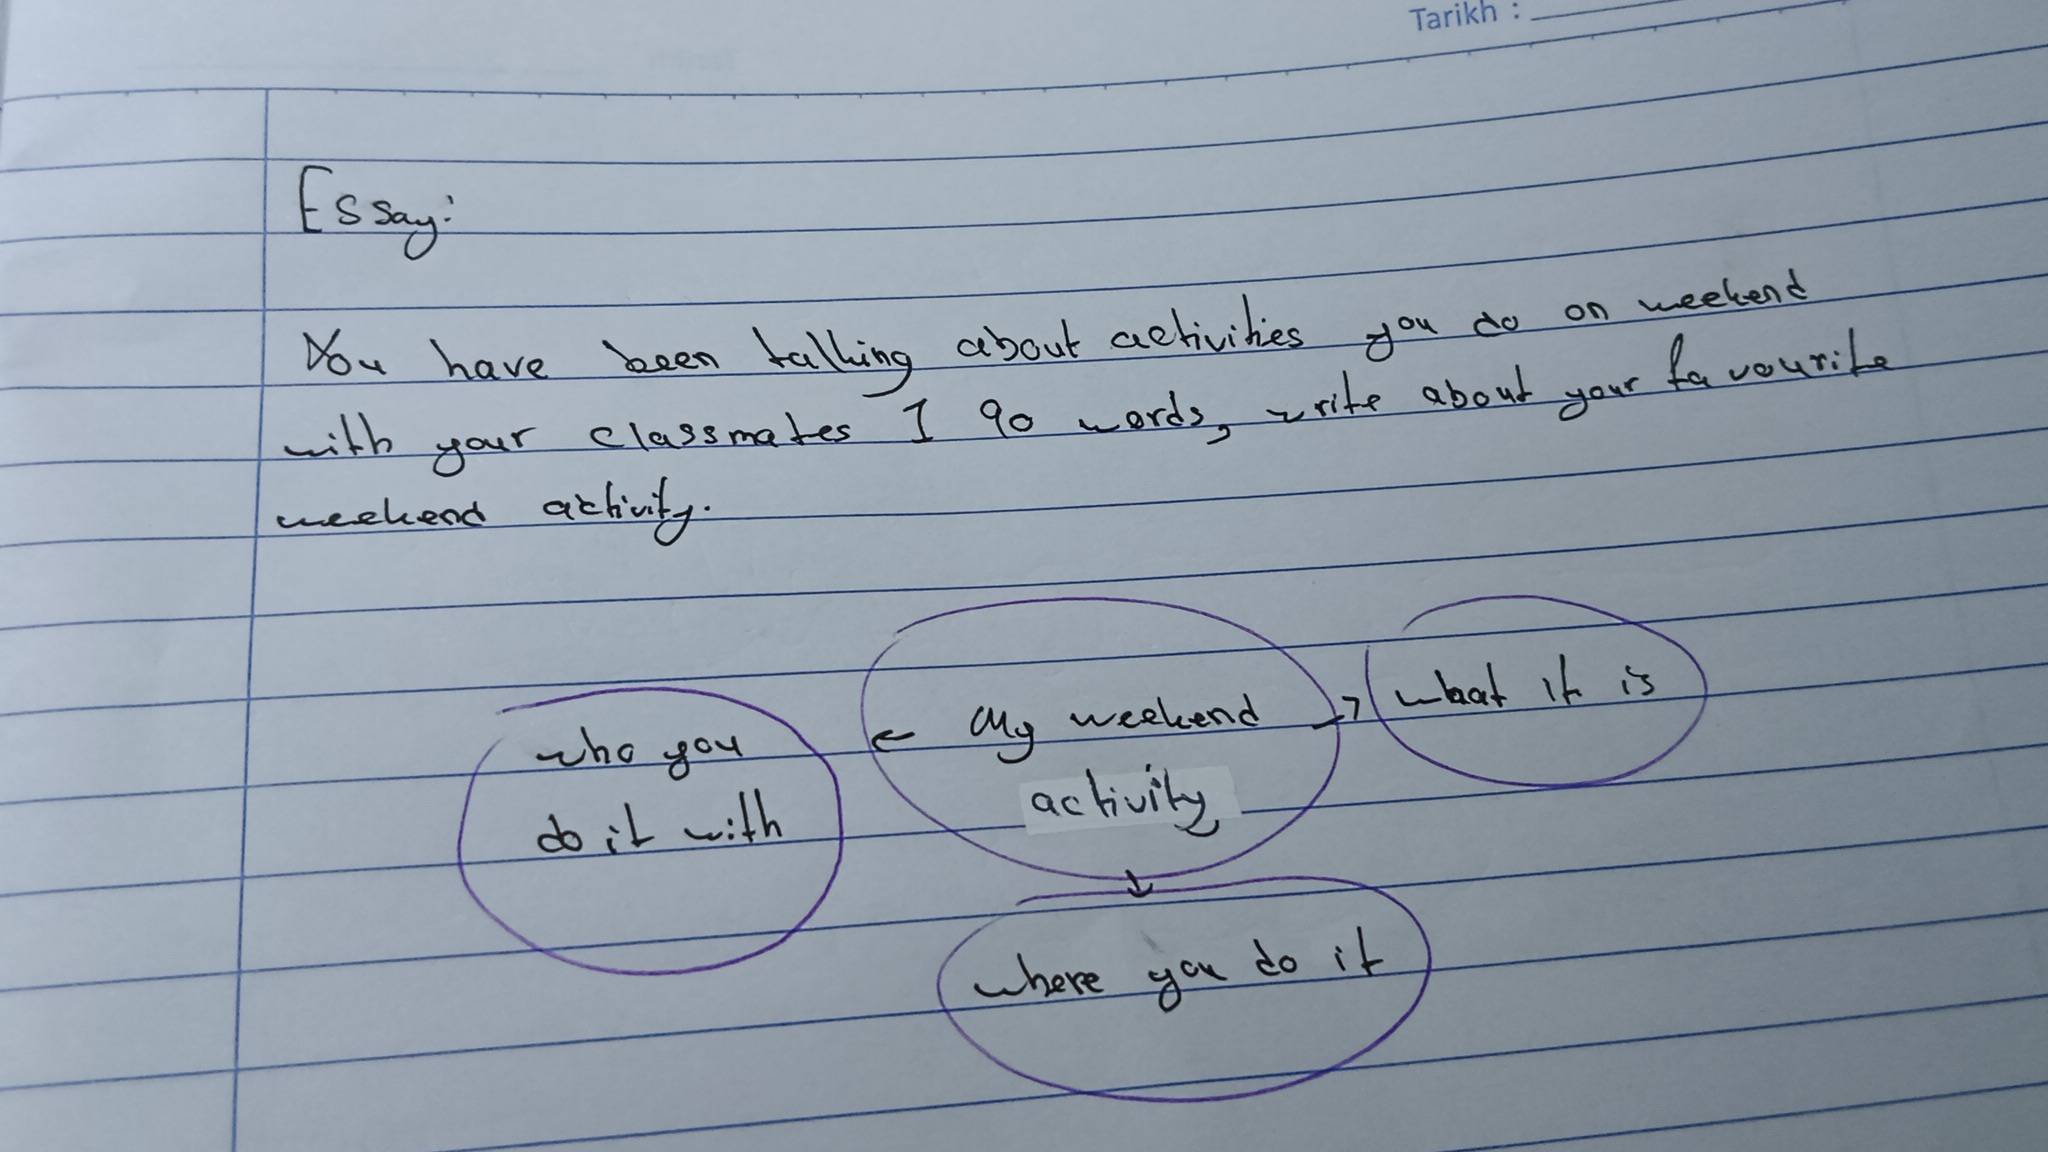 Tarikh :
Essay:
You have been talking about activities you do on weekend
with your classmates I 90 words, write about your favourite
weekend activity.
who you
do it with
← My weekend →
activity
↓
what it is
where you do it